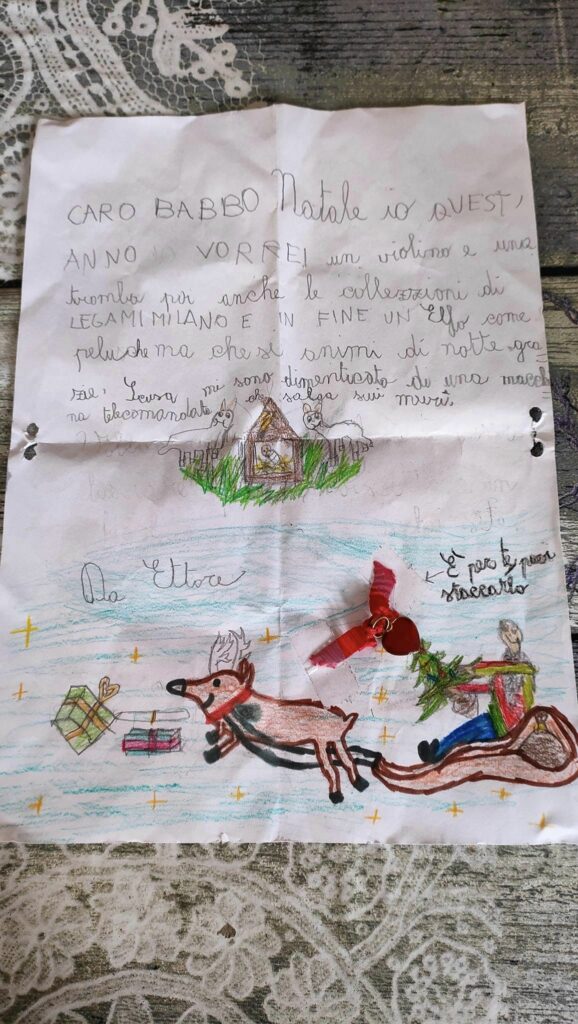 CARO BABBO Natale io QUEST'
ANNO IO VORREI un violino e una
tromba poi anche le collezzioni di
LEGAMI MILANO E IN FINE UN Elfo come
peluche ma che si animi di notte gra
zie. Scusa mi sono dimenticato di una macchi
na telecomandata che salga sui muri.
Da Ettore
È per te puoi
staccarlo